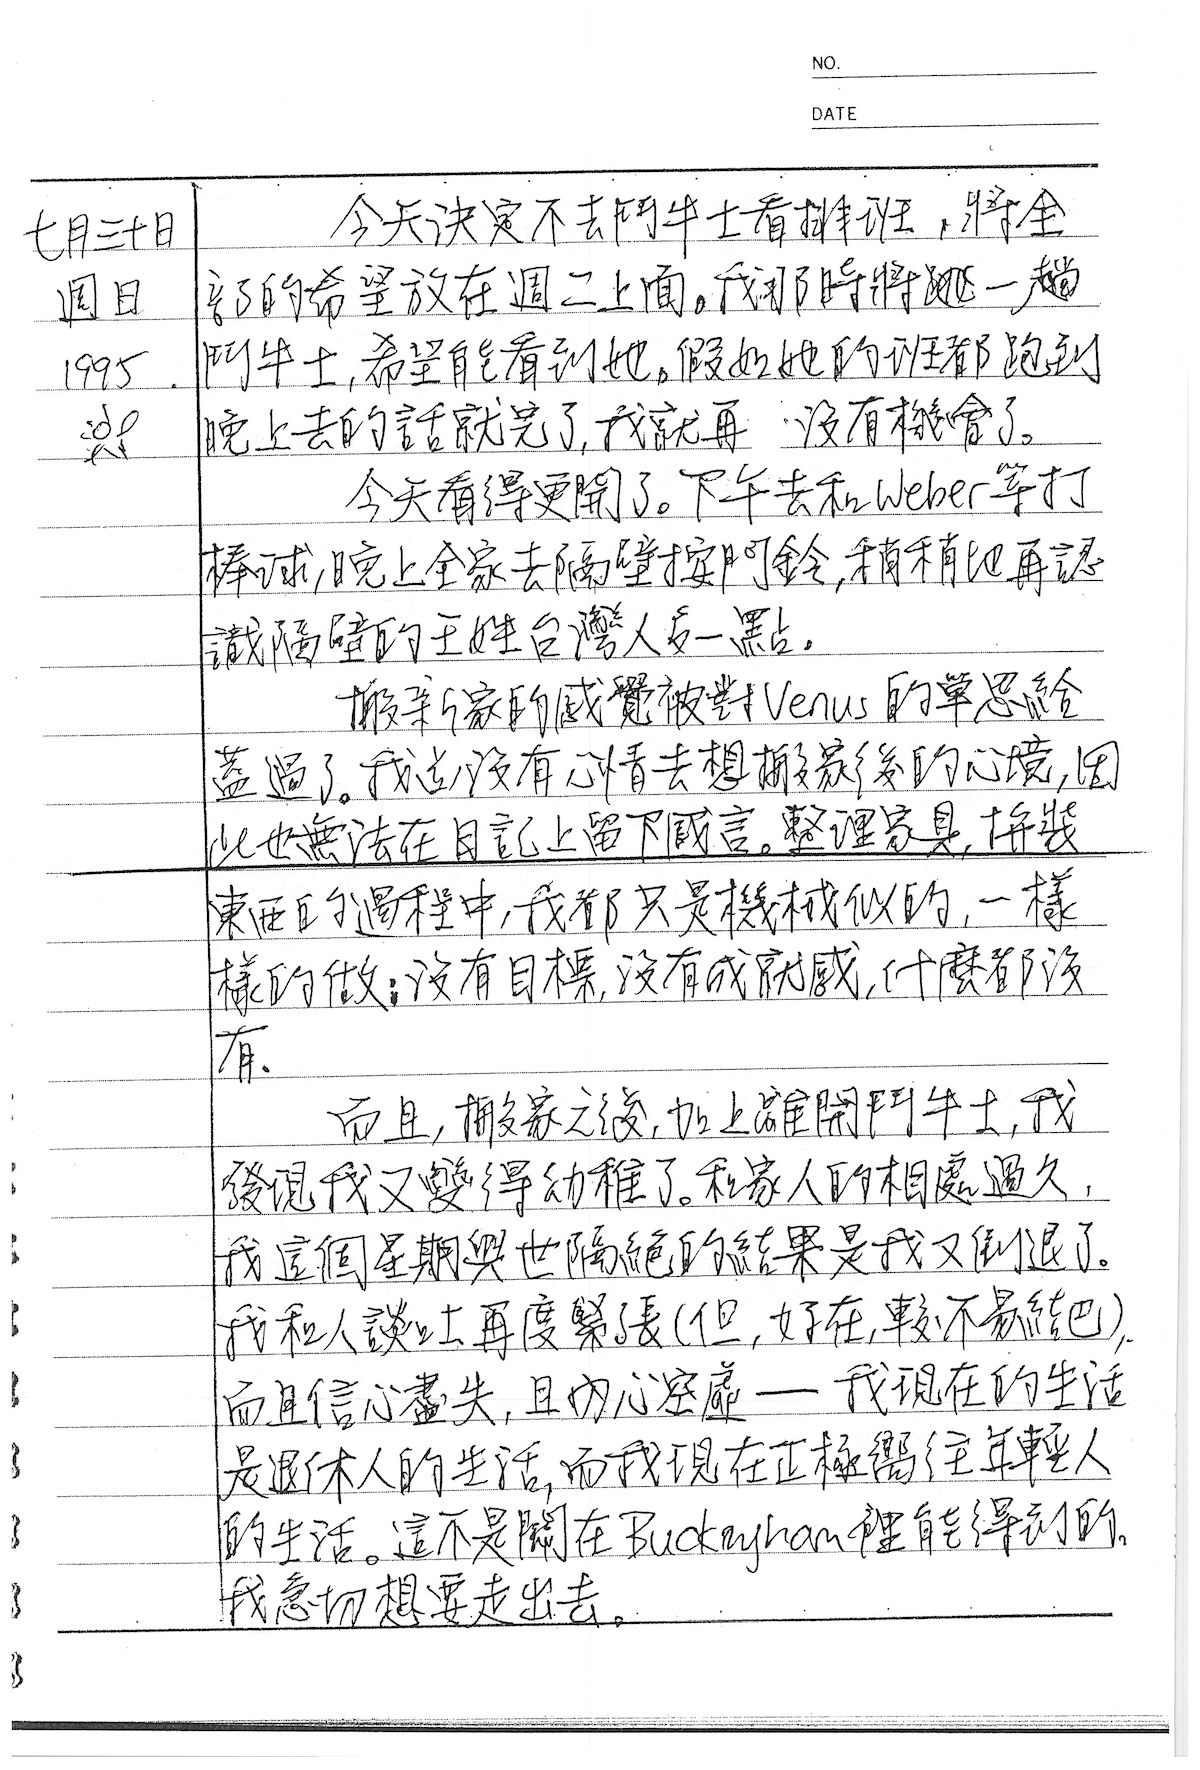 NO.
DATE
七月三十日
週日
1995.
今天決定不去鬥牛士看排班,將全
部的希望放在週二上面。我那時將跑一趟
鬥牛士,希望能看到她。假如她的班都跑到
晚上去的話就完了,我就再 沒有機會了。
今天看得更開了。下午去和Weber等打
棒球,晚上全家去隔壁按門鈴,稍稍地再認
識隔壁的王姓台灣人多一點。
搬新家的感覺被對Venus的單思給
蓋過了。我並沒有心情去想搬家後的心境,因
此也無法在日記上留下感言。整理家具,拼裝
東西的過程中,我都只是機械似的,一樣
樣的做:沒有目標,沒有成就感,什麼都沒
有.
而且,搬家之後,加上離開鬥牛士,我
發現我又變得幼稚了。和家人的相處過久,
我這個星期與世隔絕的結果是我又倒退了。
我和人談吐再度緊張(但,好在,較不易結巴),
而且信心盡失,且內心空虛 — 我現在的生活
是退休人的生活,而我現在正極嚮往年輕人
的生活。這不是關在Buckingham裡能得到的。
我急切想要走出去。